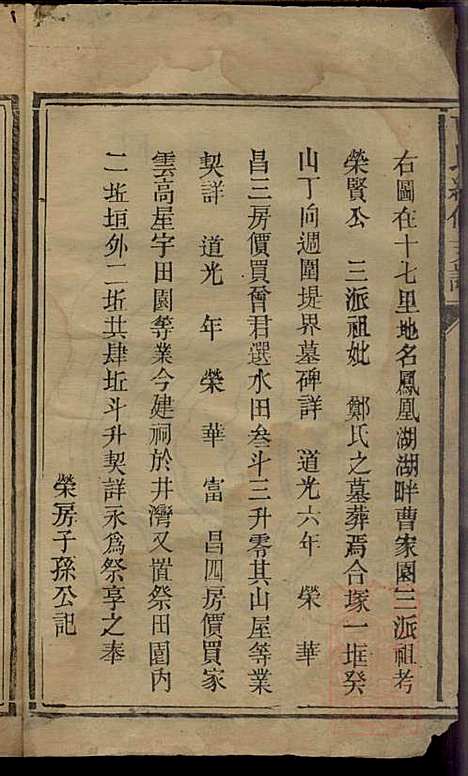 右圖在十七里地名鳳凰湖湖畔曹家園三派祖考
榮賢公 三派祖妣 鄭氏之墓葬焉合塚一堆癸
山丁向週圍堤界墓碑詳 道光六年 榮 華
昌三房價買曾君選水田叁斗三升零其山屋等業
契詳 道光 年 榮 華 富 昌四房價買家
雲高星宇田園等業今建祠於井灣又置祭田園內
二坵垣外二坵共肆坵斗升契詳永爲祭享之奉
榮房子孫公記